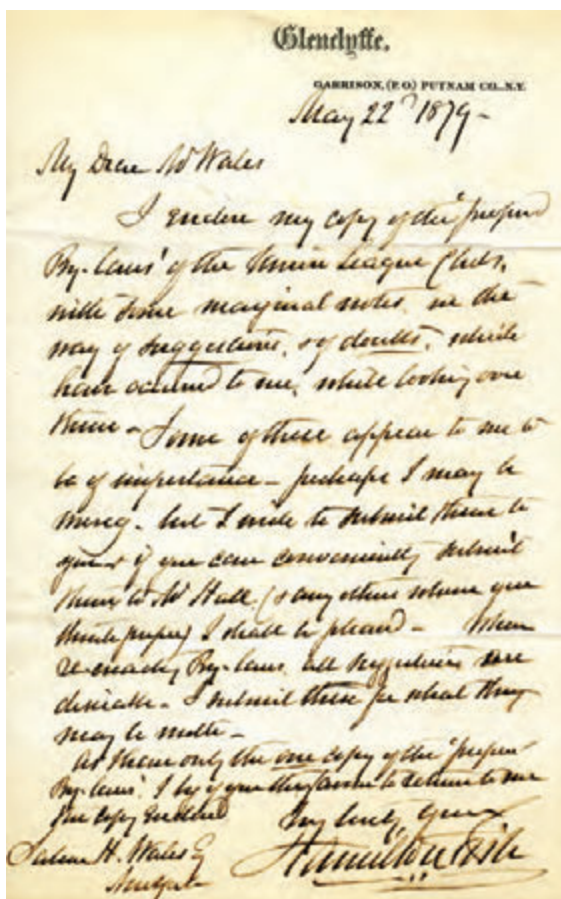 Glenclyffe.
GARRISON, (P. O.) PUTNAM CO., N.Y.
May 22d 1879 -
My Dear Mr Wales
I enclose my copy of the "proposed
By-laws" of the Union League Club,
with some marginal notes, in the
way of suggestions, & of doubts, which
have occurred to me, while looking over
them - Some of these appear to me to
be of importance - perhaps I may be
wrong - but I wish to submit them to
you & if you can conveniently submit
them to Mr Hall (& any others whom you
think proper) I shall be pleased - When
re-enacting By-laws, all suggestions are
desirable - I submit these for what they
may be worth -
As I have only the one copy of the "proposed
By-laws" I beg of you the favor to return to me
the copy enclosed
Very truly yours
Hamilton Fish
Salem H. Wales Esq
New York